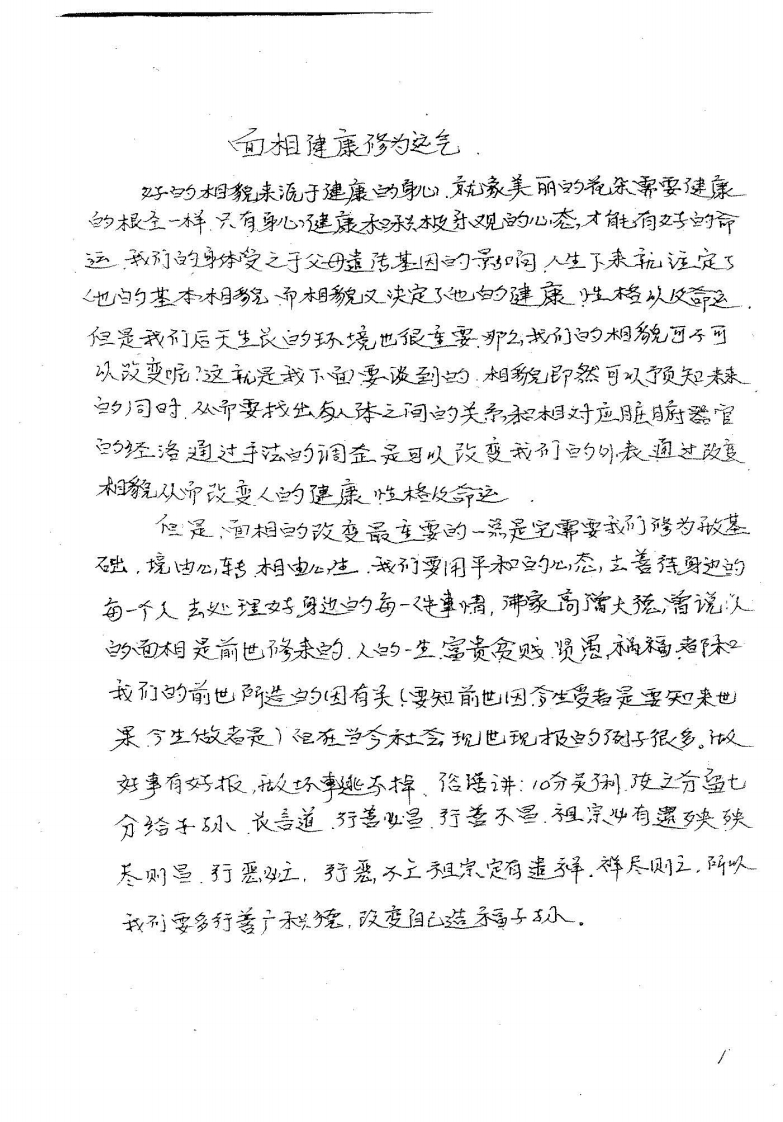 面相健康修为运气.
好的相貌来源于健康的身心.就像美丽的花朵需要健康
的根茎一样.只有身心健康和积极乐观的心态,才能有好的命
运.我们的身体受之于父母遗传基因的影响,人生下来就注定了
他的基本相貌.而相貌又决定了他的健康.性格以及命运.
但是我们后天生长的环境也很重要.那么我们的相貌可不可
以改变呢?这就是我下面要谈到的.相貌即然可以预知未来
的同时.从而要找出与人体之间的关系和相对应脏腑器官
的经络通过手法的调整是可以改变我们的外表通过改变
相貌从而改变人的健康性格及命运.
但是,面相的改变最重要的一点是它需要我们修为做基
础.境由心转.相由心生.我们要用平和的心态,去善待身边的
每一个人去处理好身边的每一件事情,佛家高僧大德,曾说人
的面相是前世修来的.人的一生.富贵贫贱.贤愚,祸福.都和
我们的前世所造的因有关(要知前世因今生受者是要知来世
果今生做者是)但在当今社会现世现报的例子很多。做
好事有好报,做坏事逃不掉、俗语讲:10分灵利.使七分留七
分给子孙.古言道.行善必昌.行善不昌.祖宗必有遗殃殃
尽则昌.行恶必亡.行恶不亡祖宗定有遗祥.祥尽则亡.所以
我们要多行善广积德,改变自己造福子孙。
1